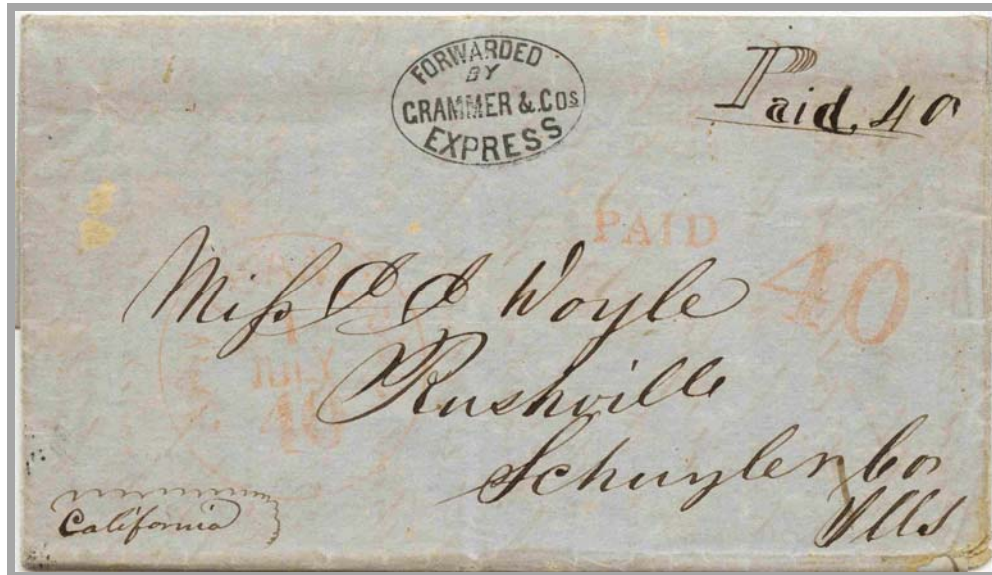 FORWARDED
BY
GRAMMER & COS
EXPRESS
Paid, 40
PAID
40
Miss J J Woyle
JULY
Rushville
Schuyler Co
Ills
California